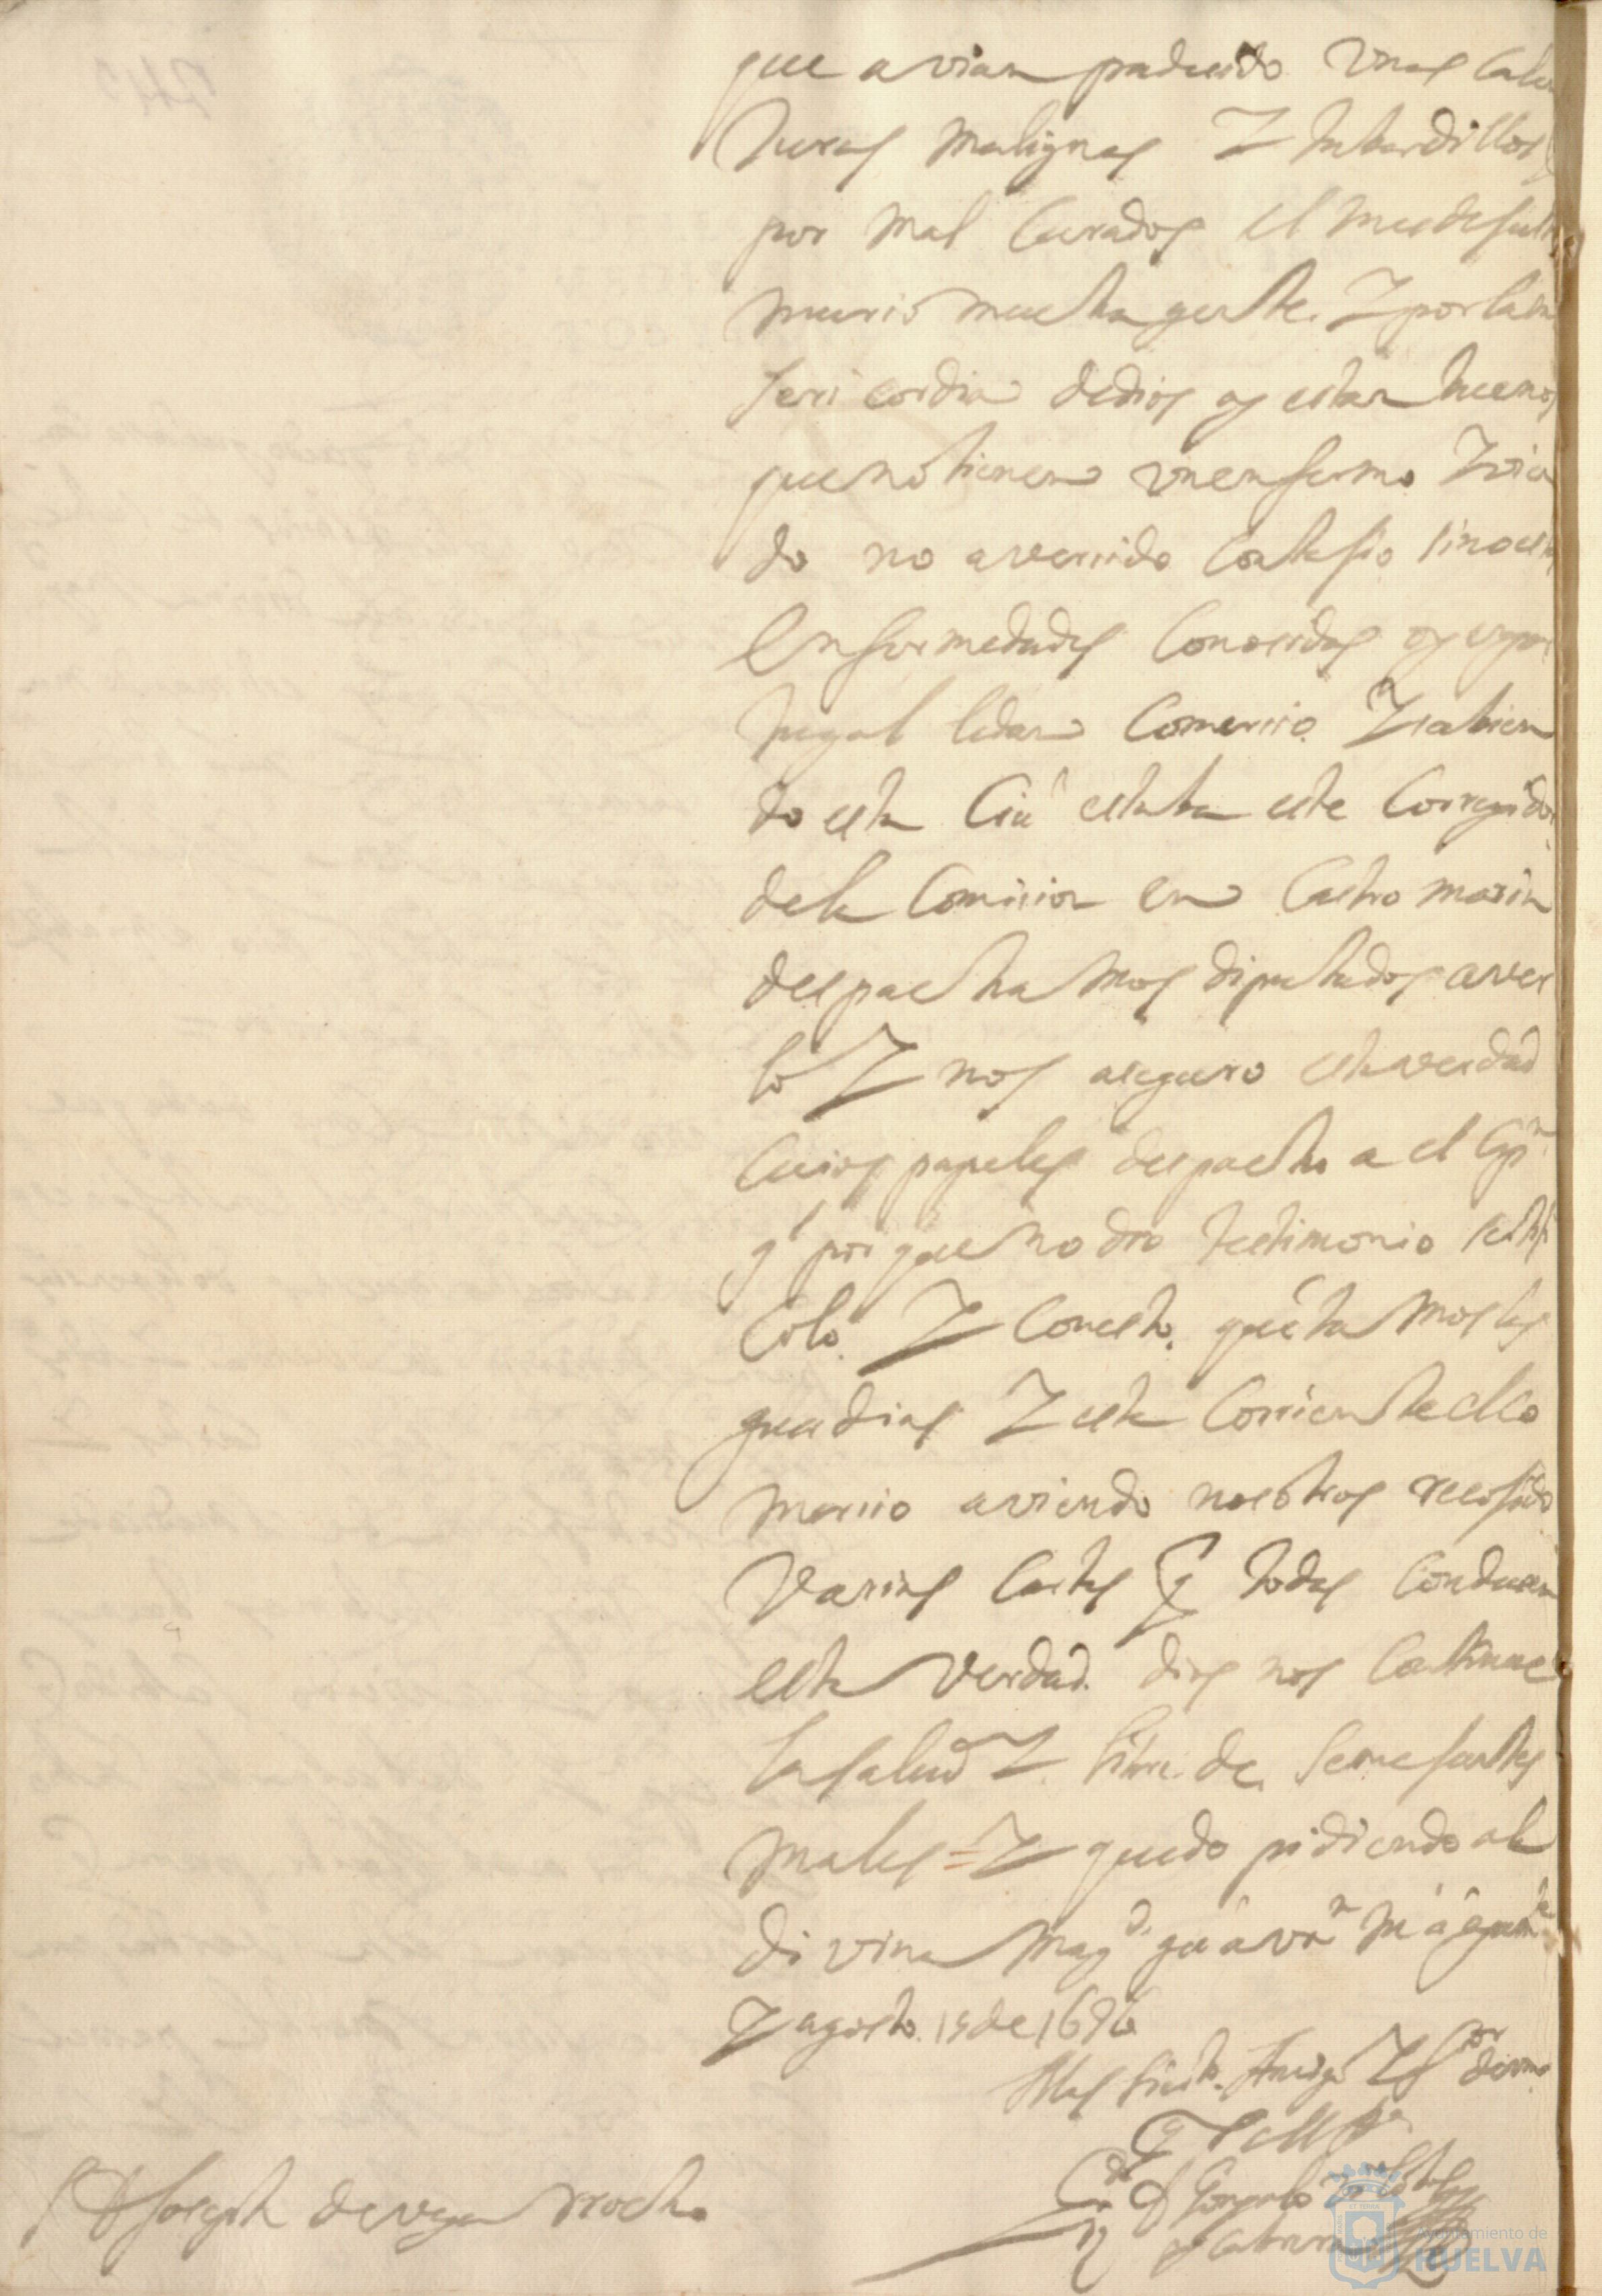 que avian padecido Unas Calen
turas malignas Y tabardillos
por mal Curados el mes de Julio
murio mucha gente. Y por la mi
sericordia de dios oy estan buenos
que no tienen un enfermo Y vien
do no aver sido Contajio sino
Enfermedades Conosidas oy
tugal le dan Comercio. Y sabien
do esta Ciud estaba este Corregidor
de la Comision en Castro marin
despachamos diputados a ver
lo Y nos aseguro esta verdad
Cuios papeles despacho a el Cpn
gl por que no dio testimonio
solo. Y Con esto. quitamos las
guardias Y esta Corriente el co
mercio aviendo nosotros recojido
Varias Cartas q todas Conducen
esta verdad. dios nos Continue
la salud Y libre de semejantes
males = Y quedo pidiendo a la
divina Magd. gue a vm
Y agosto. 15 de 1686
Mas sierto. Amigo Y sor de vm
q V M B
Gonzalo
Cabrera
Sr D Joseph de vega Rrocha
Ayuntamiento de
HUELVA